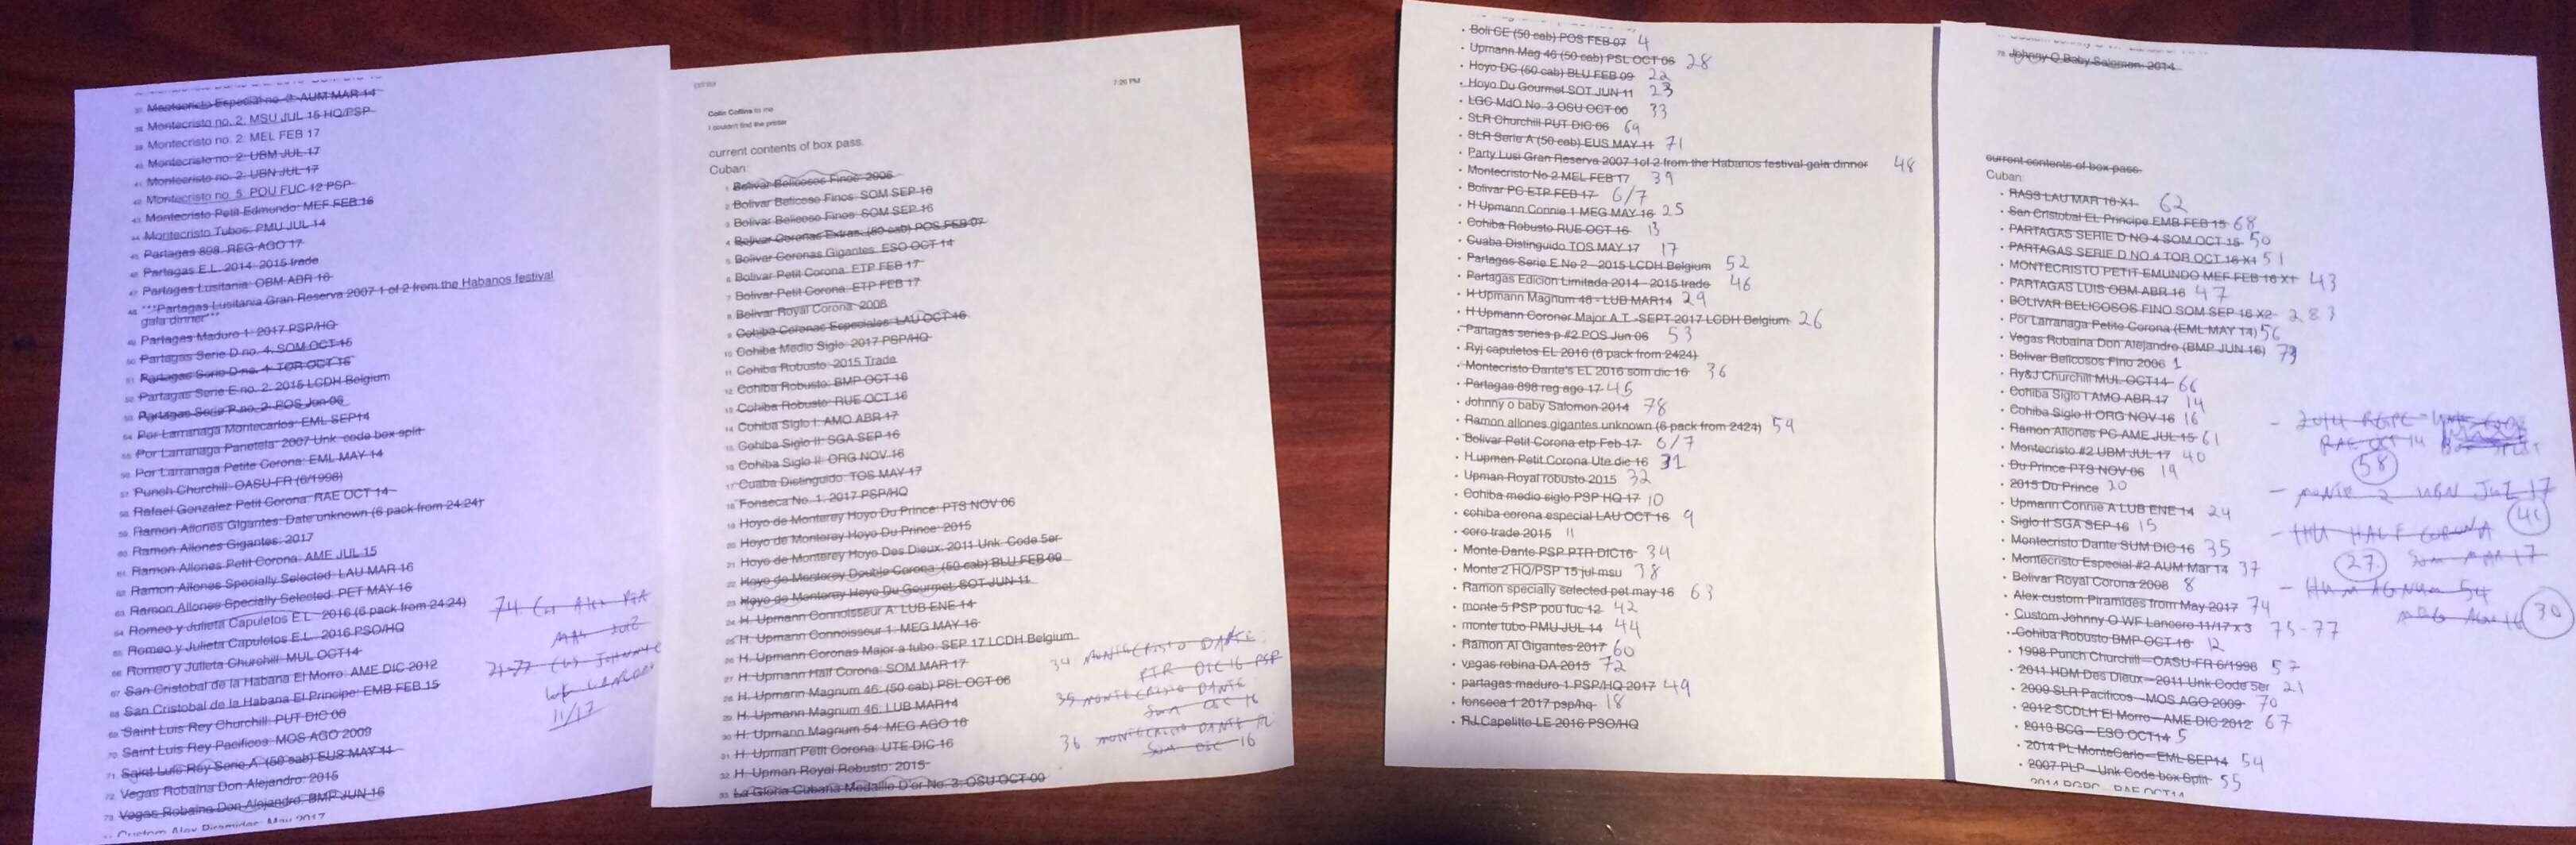 37. Montecristo Especial no. 2: AUM MAR 14
38. Montecristo no. 2: MSU JUL 15 HQ/PSP
39. Montecristo no. 2: MEL FEB 17
40. Montecristo no. 2: UBM JUL 17
41. Montecristo no. 2: UBN JUL 17
42. Montecristo no. 5: POU FUC 12 PSP
43. Montecristo Petit Edmundo: MEF FEB 16
44. Montecristo Tubos: PMU JUL 14
45. Partagas 898: REG AGO 17
46. Partagas E.L. 2014: 2015 trade
47. Partagas Lusitania: OBM ABR 16
48. ***Partagas Lusitania Gran Reserva 2007 1 of 2 from the Habanos festival
gala dinner***
49. Partagas Maduro 1: 2017 PSP/HQ
50. Partagas Serie D no. 4: SOM OCT 15
51. Partagas Serie D no. 4: TOR OCT 16
52. Partagas Serie E no. 2: 2015 LCDH Belgium
53. Partagas Serie P no. 2: POS Jun 06
54. Por Larranaga Montecarlos: EML SEP14
55. Por Larranaga Panetela: 2007 Unk. code box split
56. Por Larranaga Petite Corona: EML MAY 14
57. Punch Churchill: OASU-FR (6/1998)
58. Rafael Gonzalez Petit Corona: RAE OCT 14
59. Ramon Allones Gigantes: Date unknown (6 pack from 24:24)
60. Ramon Allones Gigantes: 2017
61. Ramon Allones Petit Corona: AME JUL 15
62. Ramon Allones Specially Selected: LAU MAR 16
63. Ramon Allones Specially Selected: PET MAY 16
64. Romeo y Julieta Capuletos E.L.: 2016 (6 pack from 24:24)
65. Romeo y Julieta Capuletos E.L.: 2016 PSO/HQ
66. Romeo y Julieta Churchill: MUL OCT14
67. San Cristobal de la Habana El Morro: AME DIC 2012
68. San Cristobal de la Habana El Principe: EMB FEB 15
69. Saint Luis Rey Churchill: PUT DIC 06
70. Saint Luis Rey Pacificos: MOS AGO 2009
71. Saint Luis Rey Serie A: (50 cab) EUS MAY 11
72. Vegas Robaina Don Alejandro: 2015
73. Vegas Robaina Don Alejandro: BMP JUN 16
Custom Alex Piramides: May 2017
74 Alex
11/17
printer
7:26 PM
Colin Collins to me
I couldn't find the printer
current contents of box pass.
Cuban:
1. Bolivar Belicosos Finos: 2006
2. Bolivar Belicoso Finos: SOM SEP 16
3. Bolivar Belicoso Finos: SOM SEP 16
4. Bolivar Coronas Extras: (50 cab) POS FEB 07
5. Bolivar Coronas Gigantes: ESO OCT 14
6. Bolivar Petit Corona: ETP FEB 17
7. Bolivar Petit Corona: ETP FEB 17
8. Bolivar Royal Corona: 2008
9. Cohiba Coronas Especiales: LAU OCT 16
10. Cohiba Medio Siglo: 2017 PSP/HQ
11. Cohiba Robusto: 2015 Trade
12. Cohiba Robusto: BMP OCT 16
13. Cohiba Robusto: RUE OCT 16
14. Cohiba Siglo I: AMO ABR 17
15. Cohiba Siglo II: SGA SEP 16
16. Cohiba Siglo II: ORG NOV 16
17. Cuaba Distinguido: TOS MAY 17
18. Fonseca No. 1: 2017 PSP/HQ
19. Hoyo de Monterey Hoyo Du Prince: PTS NOV 06
20. Hoyo de Monterey Hoyo Du Prince: 2015
21. Hoyo de Monterey Hoyo Des Dieux: 2011 Unk. Code 5er
22. Hoyo de Monterey Double Corona: (50 cab) BLU FEB 09
23. Hoyo de Monterey Hoyo Du Gourmet: SOT JUN 11
24. H. Upmann Connoisseur A: LUB ENE 14
25. H. Upmann Connoisseur 1: MEG MAY 16
26. H. Upmann Coronas Major a tubo: SEP 17 LCDH Belgium
27. H. Upmann Half Corona: SOM MAR 17
28. H. Upmann Magnum 46: (50 cab) PSL OCT 06
29. H. Upmann Magnum 46: LUB MAR14
30. H. Upmann Magnum 54: MEG AGO 16
31. H. Upman Petit Corona: UTE DIC 16
32. H. Upman Royal Robusto: 2015
33. La Gloria Cubana Medaille D'or No. 3: OSU OCT 00
34 MONTECRISTO DANTE
PTR DIC 16 PSP
35 MONTECRISTO DANTE
SUM DEC 16
36 MONTECRISTO DANTE EL
SOM DEC 16
• Boli CE (50 cab) POS FEB 07 4
• Upmann Mag 46 (50 cab) PSL OCT 06 28
• Hoyo DC (50 cab) BLU FEB 09 22
• Hoyo Du Gourmet SOT JUN 11 23
• LGC MdO No. 3 OSU OCT 00 33
• SLR Churchill PUT DIC 06 69
• SLR Serie A (50 cab) EUS MAY 11 71
• Party Lusi Gran Reserva 2007 1of 2 from the Habanos festival gala dinner 48
• Montecristo No 2 MEL FEB 17 39
• Bolivar PC ETP FEB 17 6/7
• H Upmann Connie 1 MEG MAY 16 25
• Cohiba Robusto RUE OCT 16 13
• Cuaba Distinguido TOS MAY 17 17
• Partagas Serie E No 2 - 2015 LCDH Belgium 52
• Partagas Edicion Limitada 2014 - 2015 trade 46
• H Upmann Magnum 46 - LUB MAR14 29
• H Upmann Coroner Major A.T. -SEPT 2017 LCDH Belgium 26
• Partagas series p #2 POS Jun 06 53
• Ryj capuletos EL 2016 (6 pack from 2424)
• Montecristo Dante's EL 2016 som dic 16 36
• Partagas 898 reg ago 17 45
• Johnny o baby Salomon 2014 78
• Ramon allones gigantes unknown (6 pack from 2424) 59
• Bolivar Petit Corona etp Feb 17 6/7
• H.upman Petit Corona Ute dic 16 31
• Upman Royal robusto 2015 32
• Cohiba medio siglo PSP HQ 17 10
• cohiba corona especial LAU OCT 16 9
• coro trade 2015 11
• Monte Dante PSP PTR DIC16 34
• Monte 2 HQ/PSP 15 jul msu 38
• Ramon specially selected pet may 16 63
• monte 5 PSP pou fuc 12 42
• monte tubo PMU JUL 14 44
• Ramon Al Gigantes 2017 60
• vegas robina DA 2015 72
• partagas maduro 1 PSP/HQ 2017 49
• fonseca 1 2017 psp/hq 18
• RJ Capelitto LE 2016 PSO/HQ
78. Johnny O Baby Salomon: 2014
current contents of box pass.
Cuban:
• RASS LAU MAR 16 X1 62
• San Cristobal EL Principe EMB FEB 15 68
• PARTAGAS SERIE D NO 4 SOM OCT 15 50
• PARTAGAS SERIE D NO 4 TOR OCT 16 X1 51
• MONTECRISTO PETIT EMUNDO MEF FEB 16 X1 43
• PARTAGAS LUIS OBM ABR 16 47
• BOLIVAR BELICOSOS FINO SOM SEP 16 X2 2&3
• Por Larranaga Petite Corona (EML MAY 14) 56
• Vegas Robaina Don Alejandro (BMP JUN 16) 73
• Bolivar Belicosos Fino 2006 1
• Ry&J Churchill MUL OCT14 66
• Cohiba Siglo I AMO ABR 17 14
• Cohiba Siglo II ORG NOV 16 16
• Ramon Allones PC AME JUL 15 61
• Montecristo #2 UBM JUL 17 40
• Du Prince PTS NOV 06 19
• 2015 Du Prince 20
• Upmann Connie A LUB ENE 14 24
• Siglo II SGA SEP 16 15
• Montecristo Dante SUM DIC 16 35
• Montecristo Especial #2 AUM Mar 14 37
• Bolivar Royal Corona 2008 8
• Alex custom Piramides from May 2017 74
• Custom Johnny O WF Lancero 11/17 x 3 75-77
• Cohiba Robusto BMP OCT 16 12
• 1998 Punch Churchill—OASU-FR 6/1998 57
• 2011 HDM Des Dieux—2011 Unk Code 5er 21
• 2009 SLR Pacificos—MOS AGO 2009 70
• 2012 SCDLH El Morro—AME DIC 2012 67
• 2013 BCG—ESO OCT14 5
• 2014 PL MonteCarlo—EML SEP14 54
• 2007 PLP—Unk Code box Split 55
2014 RGPC - RAE OCT14
- 2014 RGPC
RAE OCT 14
58
- MONTE 2 UBN JUL 17
41
- HU HALF CORONA
27 SOM MAR 17
- HU MAGNUM 54
MEG AGO 16 30